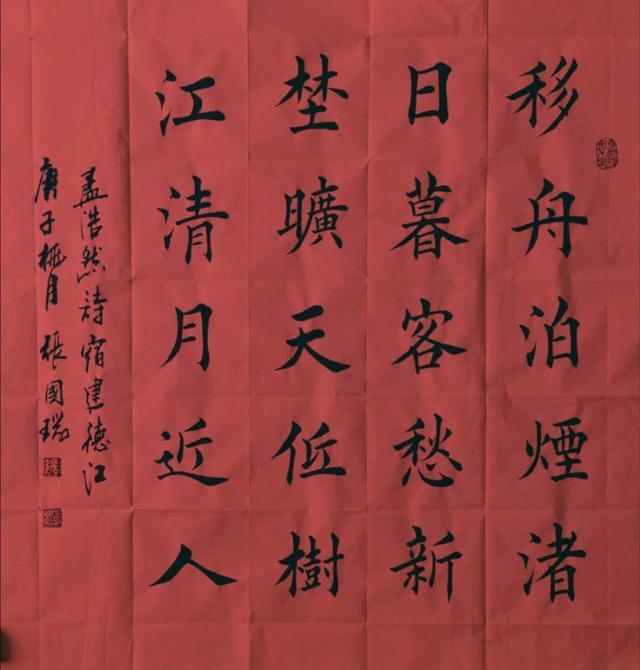 移舟泊煙渚
日暮客愁新
埜曠天低樹
江清月近人
孟浩然詩宿建德江
庚子桃月 張國瑞